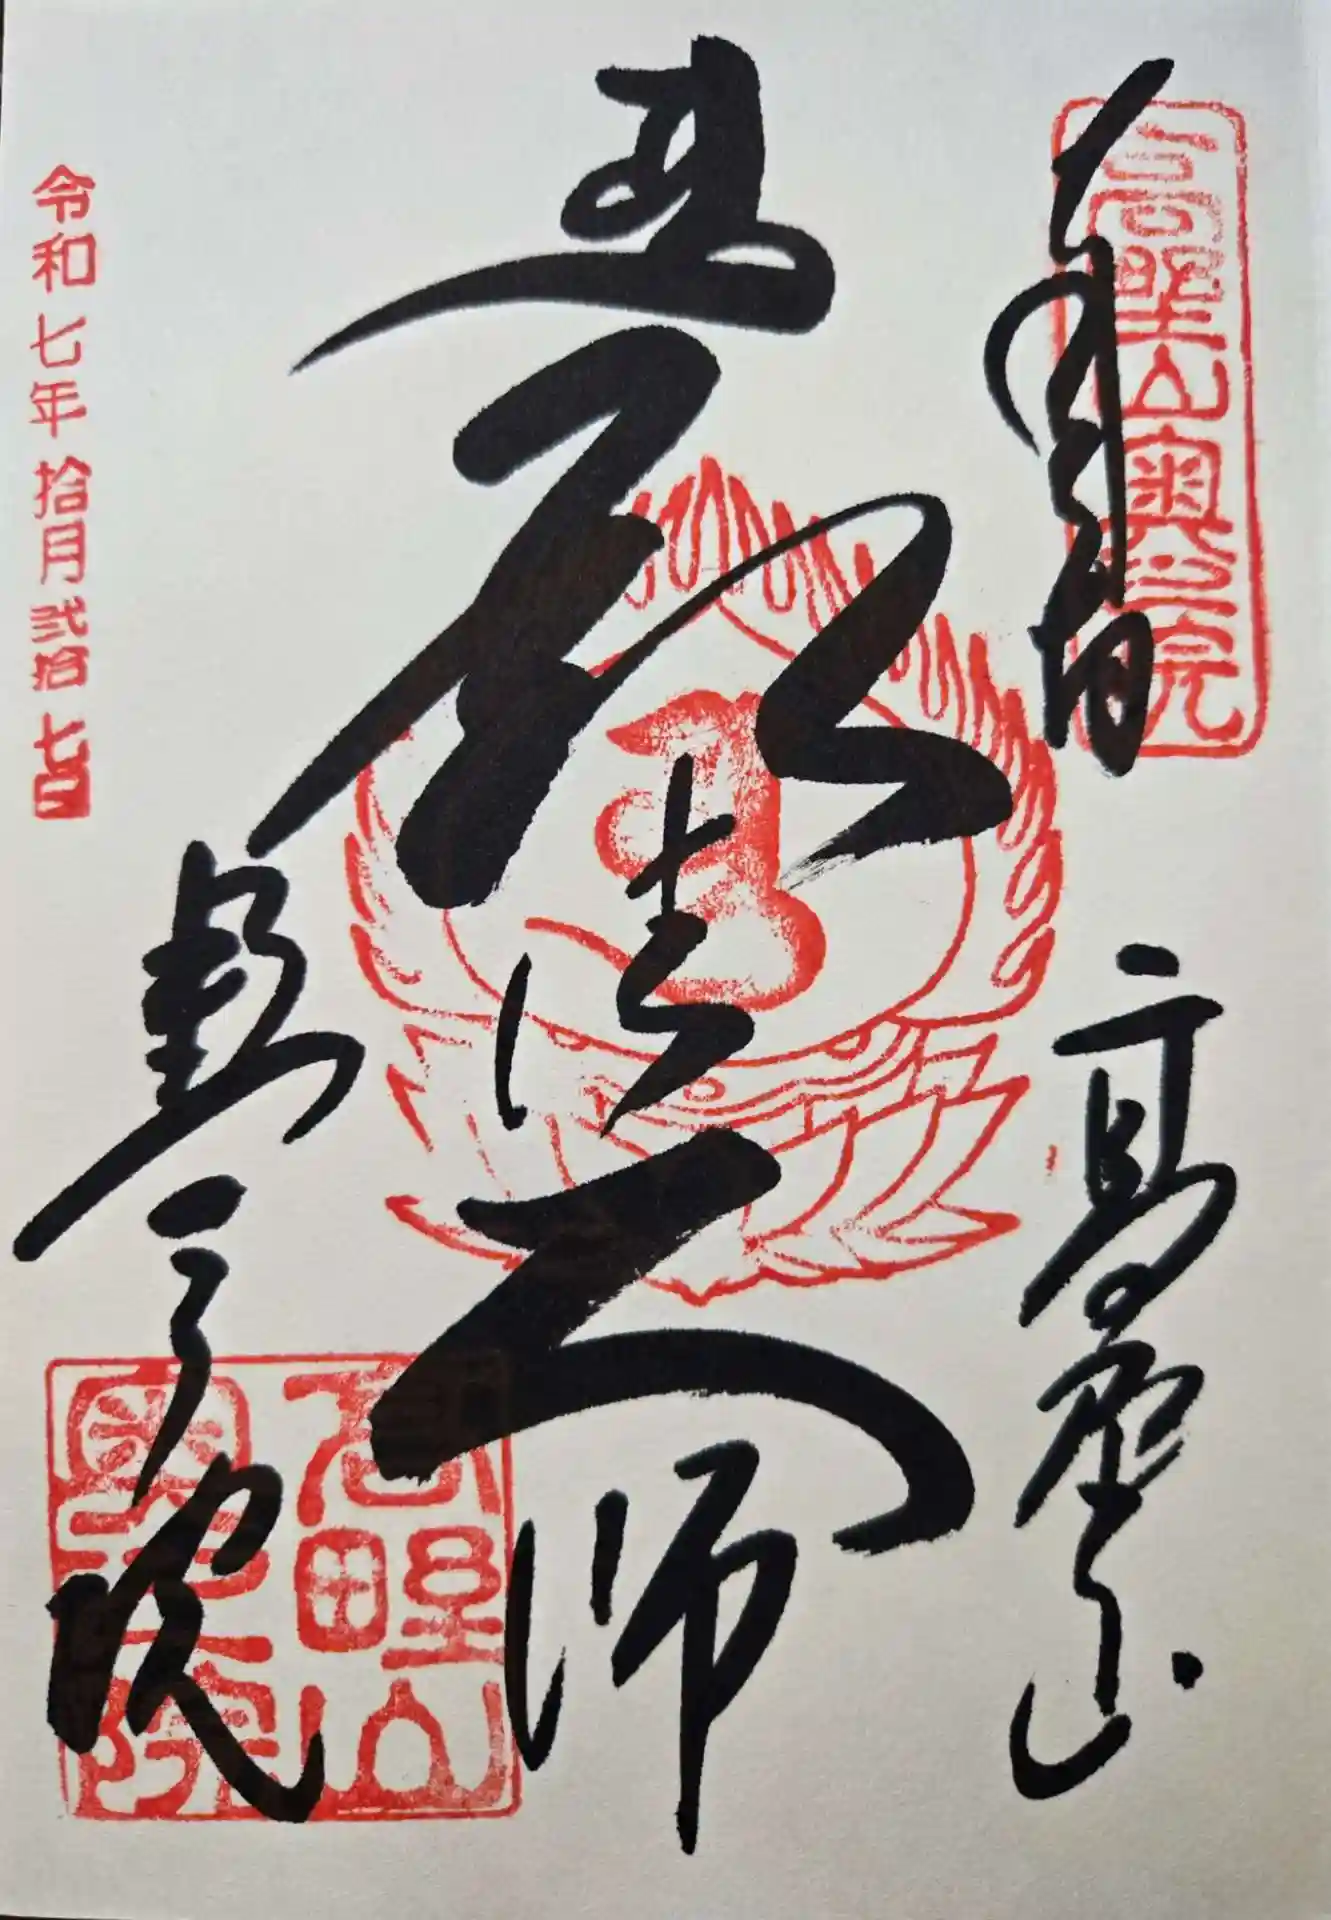 高野山奥之院
高野山
弘法大師
奥之院
高野山
奥之院
令和七年拾月弐拾七日